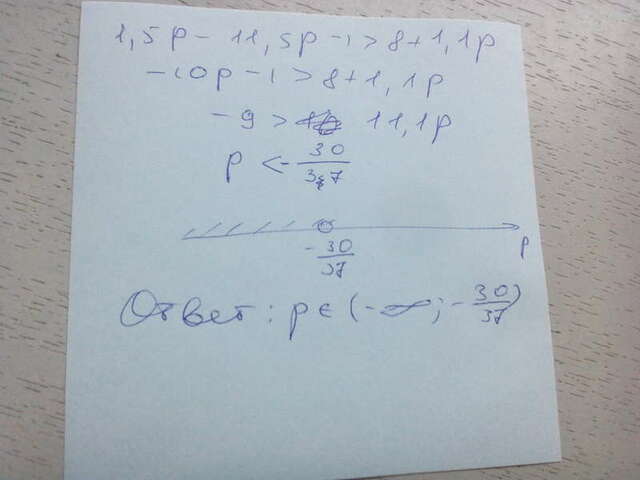 1,5p - 11,5p - 1 > 8 + 1,1p
-10p - 1 > 8 + 1,1p
-9 > 11,1p
p < - 30/37
- 30/37
p
Ответ: p ∈ (-∞; - 30/37)